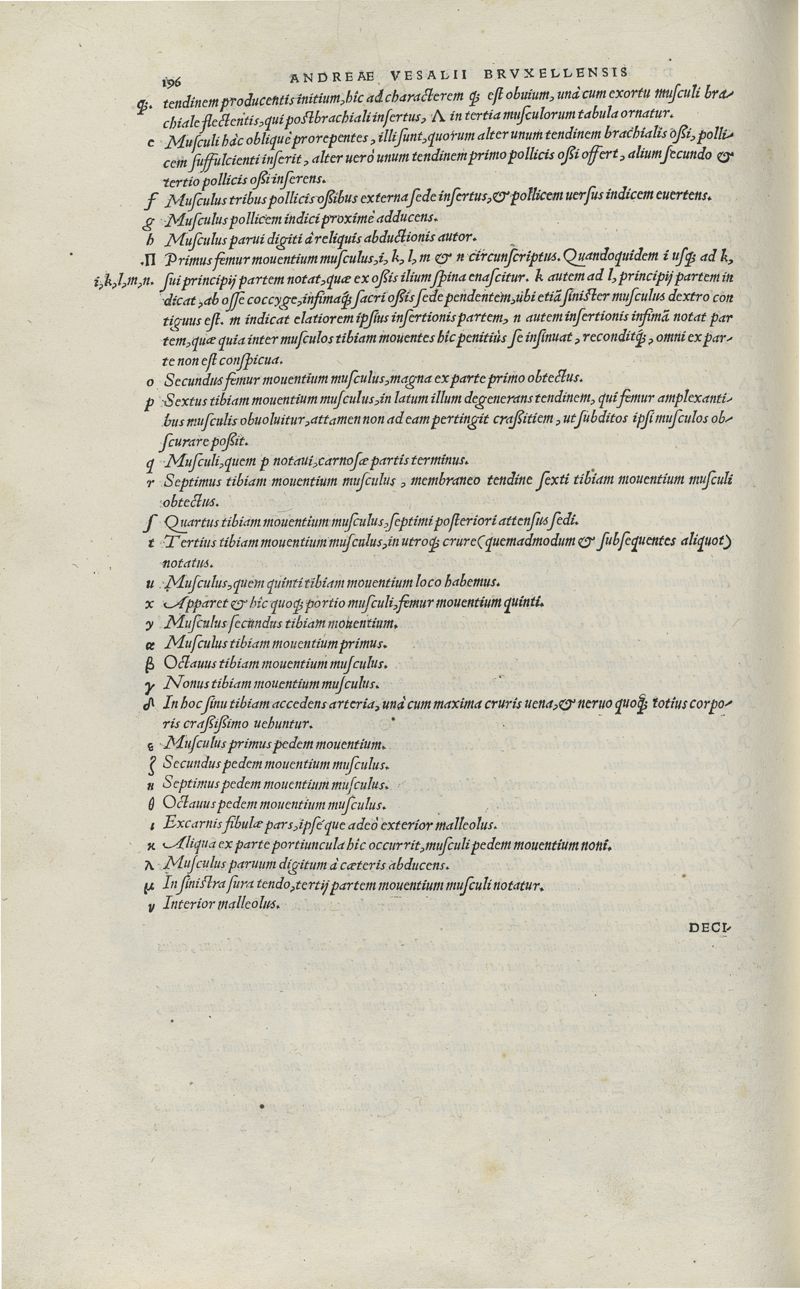 196 ANDREAE VESALII BRVXELLENSIS
ꝗ. tendinem producentis initium, hic ad characterem ꝗ est obuium, unà cum exortu musculi bra-
chiale flectentis, qui postbrachiali insertus, Λ in tertia musculorum tabula ornatur.
e Musculi hàc obliquè prorepentes, illi sunt, quorum alter unum tendinem brachialis oßi, polli-
cem suffulcienti inserit, alter uerò unum tendinem primo pollicis oßi offert, alium secundo &
tertio pollicis oßi inserens.
f Musculus tribus pollicis oßibus externa sede insertus, & pollicem uersus indicem euertens.
g Musculus pollicem indici proximè adducens.
h Musculus parui digiti à reliquis abductionis autor.
.Π Primus femur mouentium musculus, i, k, l, m & n circunscriptus. Quandoquidem i usꝗ ad k,
i, k, l, m, n. sui principij partem notat, quæ ex oßis ilium spina enascitur. k autem ad l, principij partem in
dicat, ab osse coccyge, infimaꝗ sacri oßis sede pendentem, ubi etiã sinister musculus dextro con
tiguus est. m indicat elatiorem ipsius insertionis partem, n autem insertionis infimã notat par
tem, quæ quia inter musculos tibiam mouentes hic penitiùs se insinuat, reconditꝗ, omni ex par-
te non est conspicua.
o Secundus femur mouentium musculus, magna ex parte primo obtectus.
p Sextus tibiam mouentium musculus, in latum illum degenerans tendinem, qui femur amplexanti-
bus musculis obuoluitur, attamen non ad eam pertingit craßitiem, ut subditos ipsi musculos ob-
scurare poßit.
q Musculi, quem p notaui, carnosæ partis terminus.
r Septimus tibiam mouentium musculus, membraneo tendine sexti tibiam mouentium musculi
obtectus.
ſ Quartus tibiam mouentium musculus, septimi posteriori attensus sedi.
t Tertius tibiam mouentium musculus, in utroꝗ crure (quemadmodum & subsequentes aliquot)
notatus.
u Musculus, quem quinti tibiam mouentium loco habemus.
x Apparet & hic quoꝗ portio musculi, femur mouentium quinti.
y Musculus secundus tibiam mouentium.
α Musculus tibiam mouentium primus.
β Octauus tibiam mouentium musculus.
γ Nonus tibiam mouentium musculus.
δ In hoc sinu tibiam accedens arteria, unà cum maxima cruris uena, & neruo quoꝗ totius corpo-
ris craßißimo uehuntur.
ε Musculus primus pedem mouentium.
ζ Secundus pedem mouentium musculus.
η Septimus pedem mouentium musculus.
θ Octauus pedem mouentium musculus.
ι Excarnis fibulæ pars, ipséque adeò exterior malleolus.
κ Aliqua ex parte portiuncula hic occurrit, musculi pedem mouentium noni.
λ Musculus paruum digitum à cæteris abducens.
μ In sinistra sura tendo, tertij partem mouentium musculi notatur.
ν Interior malleolus.
DECI-